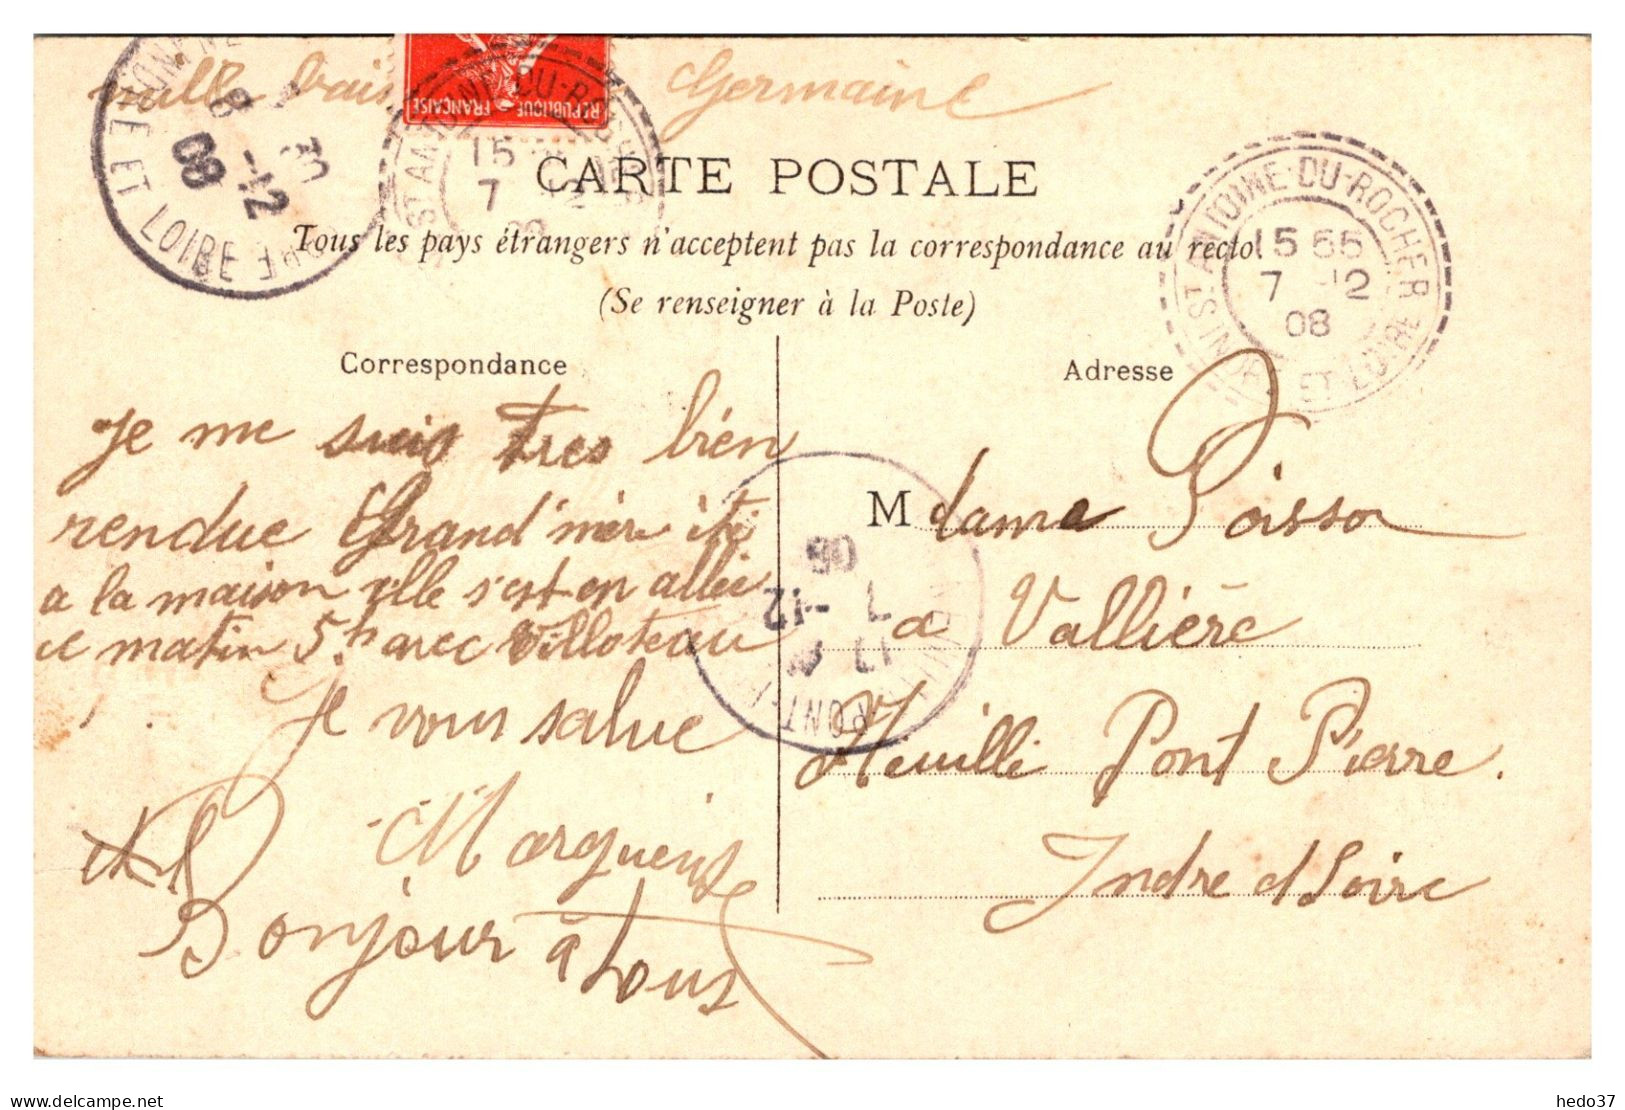 mille bais Germaine
REPUBLIQUE FRANÇAISE
CARTE POSTALE
Tous les pays étrangers n'acceptent pas la correspondance au recto
(Se renseigner à la Poste)
ST ANTOINE-DU-ROCHER
15 55
7 -12
08
INDRE ET LOIRE
15
7
8
-12
08
INDRE ET LOIRE
Correspondance
Je me suis tres bien
rendue Grand'mère
a la maison elle s'est en allée
ce matin 5h avec Villoteau
Je vous salue
Marguerite
Bonjour à tous
7 -12
08
PONT
Adresse
Madame Poisson
a Vallière
Neuilli Pont Pierre.
Indre et Loire
hedo37